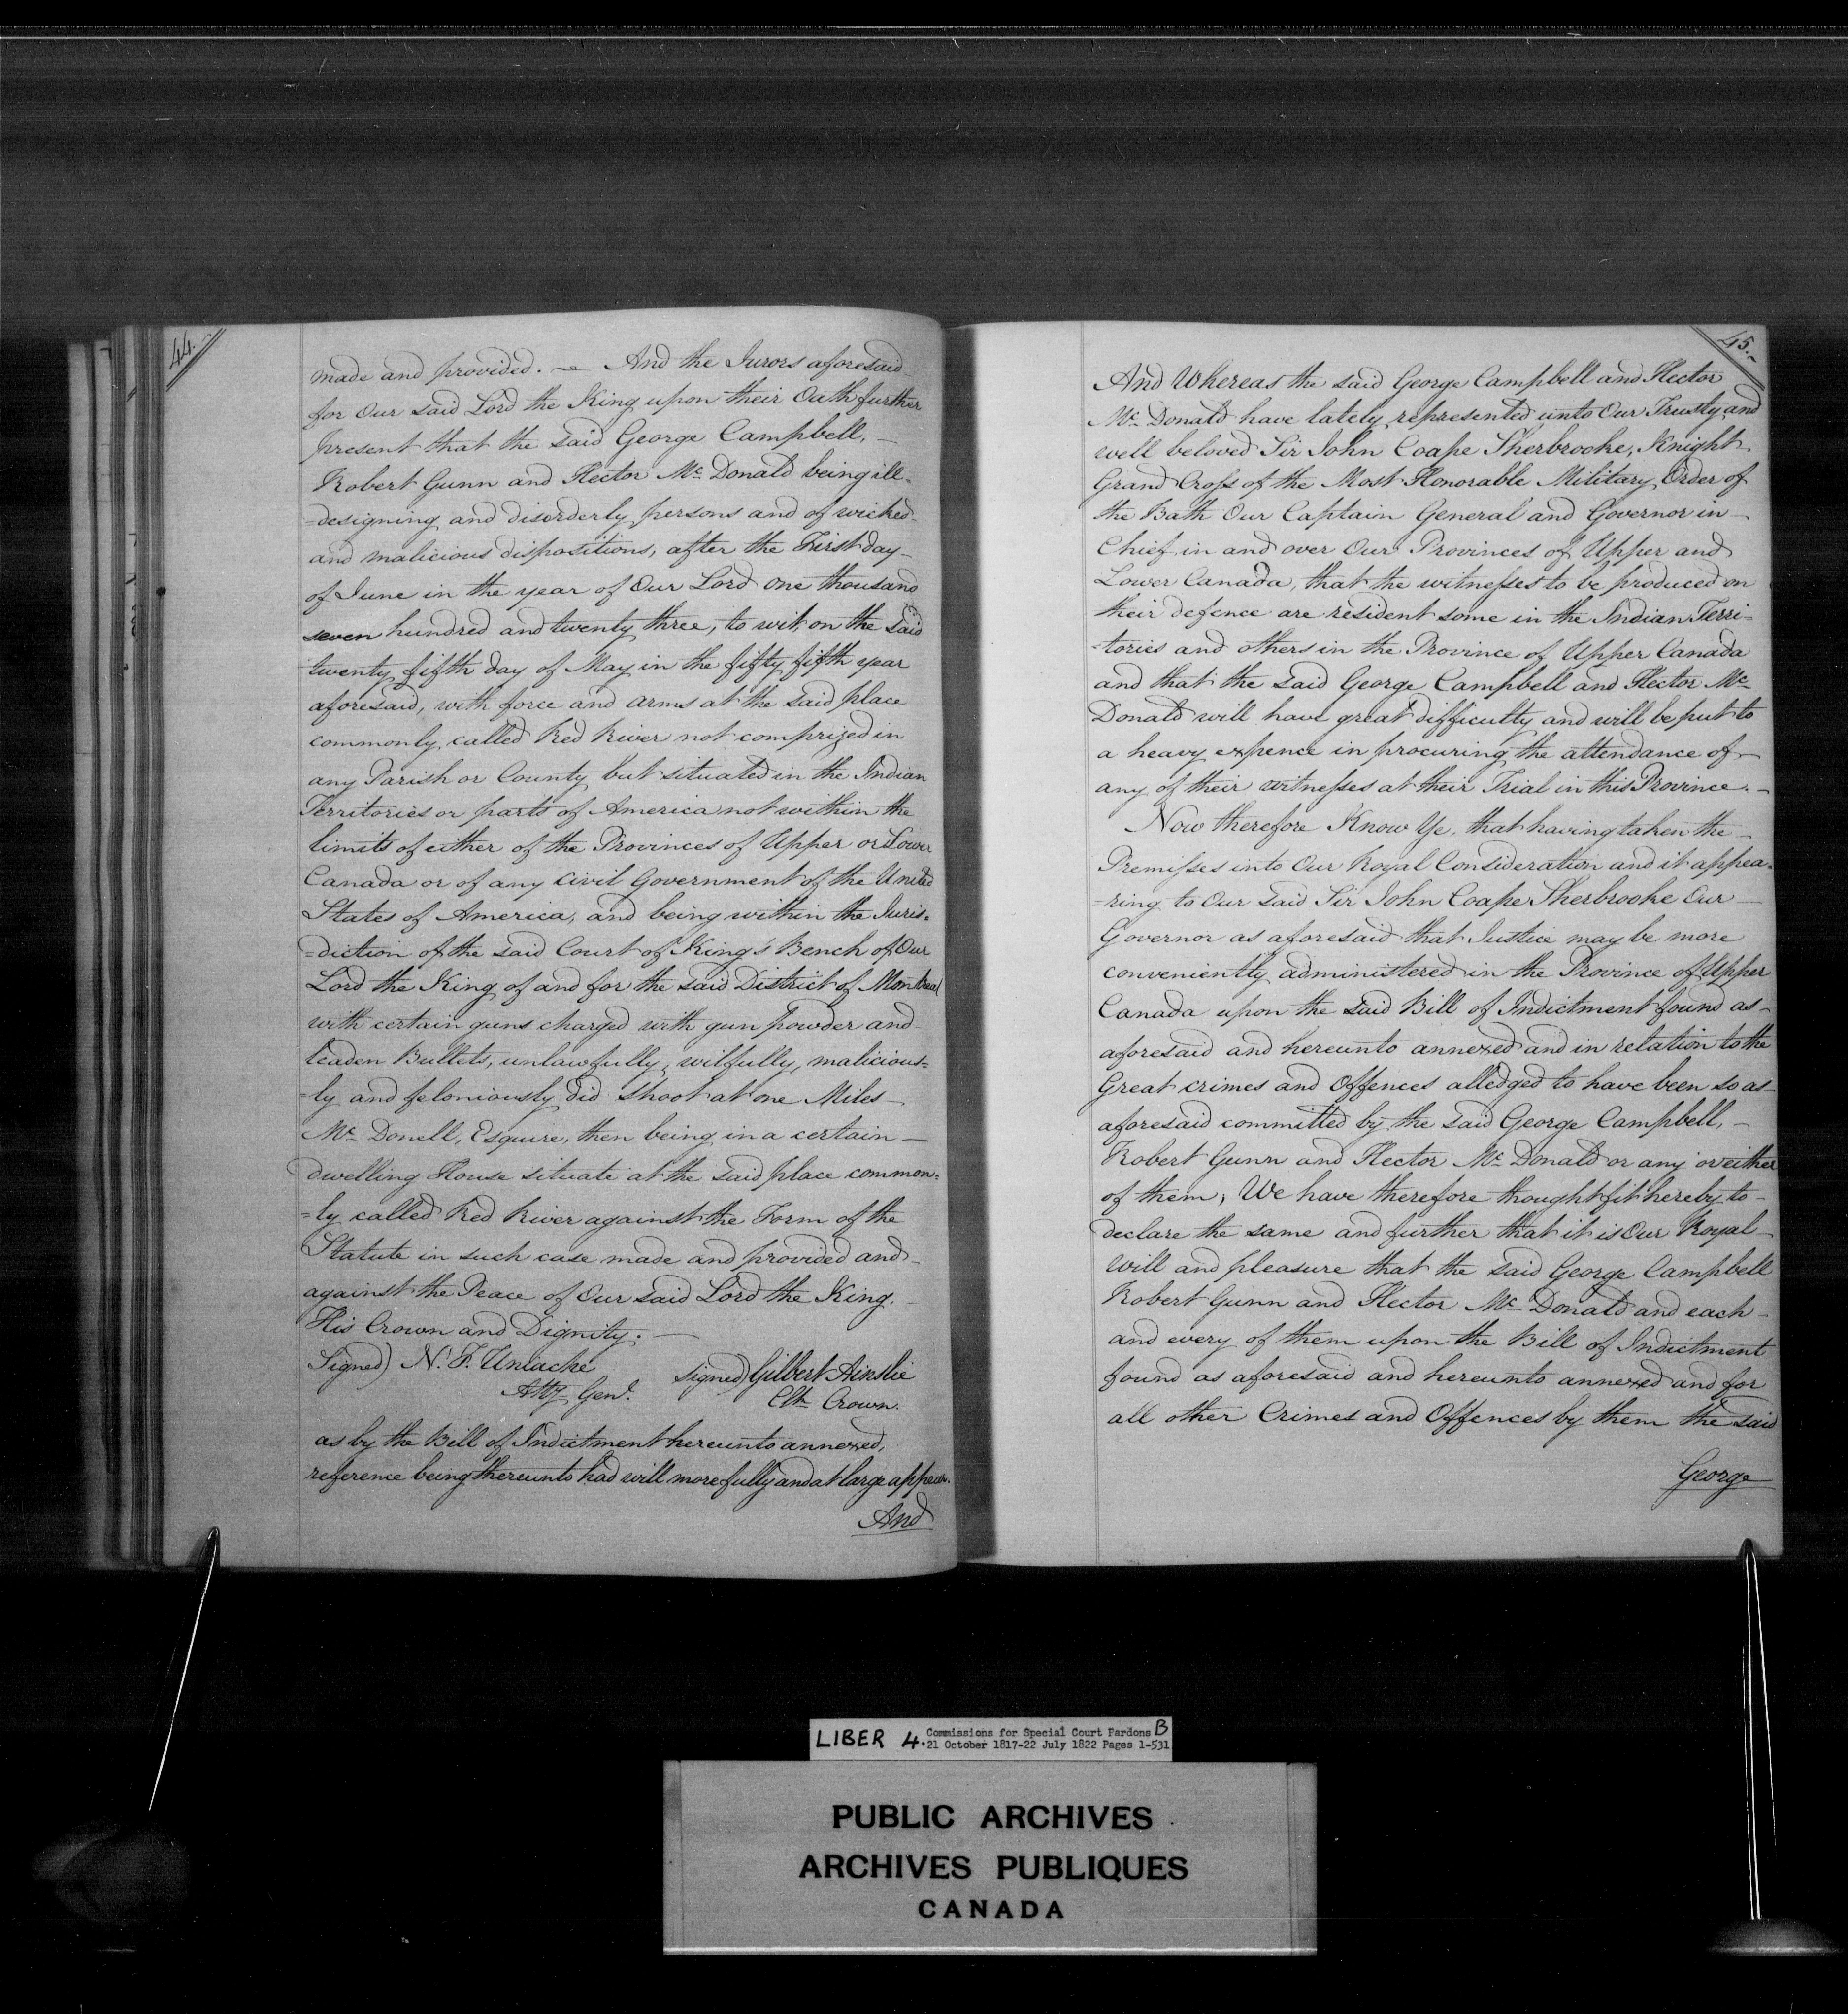 44.
made and provided. — And the Jurors aforesaid
for Our said Lord the King upon their Oath further
present that the said George Campbell, —
Robert Gunn and Hector Mc. Donald being ill-
=designing and disorderly persons and of wicked
and malicious dispositions, after the First day
of June in the year of Our Lord one thousand
seven hundred and twenty three, to wit, on the said
twenty fifth day of May in the fifty fifth year
aforesaid, with force and arms at the said place
commonly called Red River not comprized in
any Parish or County but situated in the Indian
Territories or parts of America not within the
limits of either of the Provinces of Upper or Lower
Canada or of any Civil Government of the United
States of America, and being within the Juris=
=diction of the said Court of King's Bench of Our
Lord the King of and for the said District of Montreal
with certain guns charged with gun powder and
leaden Bullets, unlawfully, wilfully, malicious=
=ly and feloniously did shoot at one Miles —
Mc. Donell, Esquire, then being in a certain —
dwelling House situate at the said place common=
=ly called Red River against the Form of the
Statute in such case made and provided and
against the Peace of Our said Lord the King.
His Crown and Dignity. —
Signed) N. F. Uniacke signed) Gilbert Ainslie
Atty. Genl. Clk Crown.
as by the Bill of Indictment hereunto annexed,
reference being thereunto had will more fully and at large appear.
And
45.
And Whereas the said George Campbell and Hector
Mc. Donald have lately represented unto Our Trusty and
well beloved Sir John Coape Sherbrooke, Knight
Grand Cross of the Most Honorable Military Order of
the Bath Our Captain General and Governor in —
Chief in and over Our Provinces of Upper and
Lower Canada, that the witnesses to be produced on
their defence are resident some in the Indian Terri=
=tories and others in the Province of Upper Canada
and that the said George Campbell and Hector Mc.
Donald will have great difficulty and will be put to
a heavy expence in procuring the attendance of
any of their witnesses at their Trial in this Province. —
Now therefore Know Ye, that having taken the —
Premisses into Our Royal Consideration and it appea=
=ring to Our said Sir John Coape Sherbrooke Our —
Governor as aforesaid that Justice may be more
conveniently administered in the Province of Upper
Canada upon the said Bill of Indictment found as —
aforesaid and hereunto annexed and in relation to the
Great crimes and Offences alledged to have been so as
aforesaid committed by the said George Campbell, —
Robert Gunn and Hector Mc. Donald or any or either
of them, We have therefore thought fit hereby to —
declare the same and further that it is Our Royal —
will and pleasure that the said George Campbell
Robert Gunn and Hector Mc. Donald and each —
and every of them upon the Bill of Indictment
found as aforesaid and hereunto annexed and for
all other Crimes and Offences by them the said
George
LIBER 4. Commissions for Special Court Pardons B
21 October 1817-22 July 1822 Pages 1-531
PUBLIC ARCHIVES
ARCHIVES PUBLIQUES
CANADA